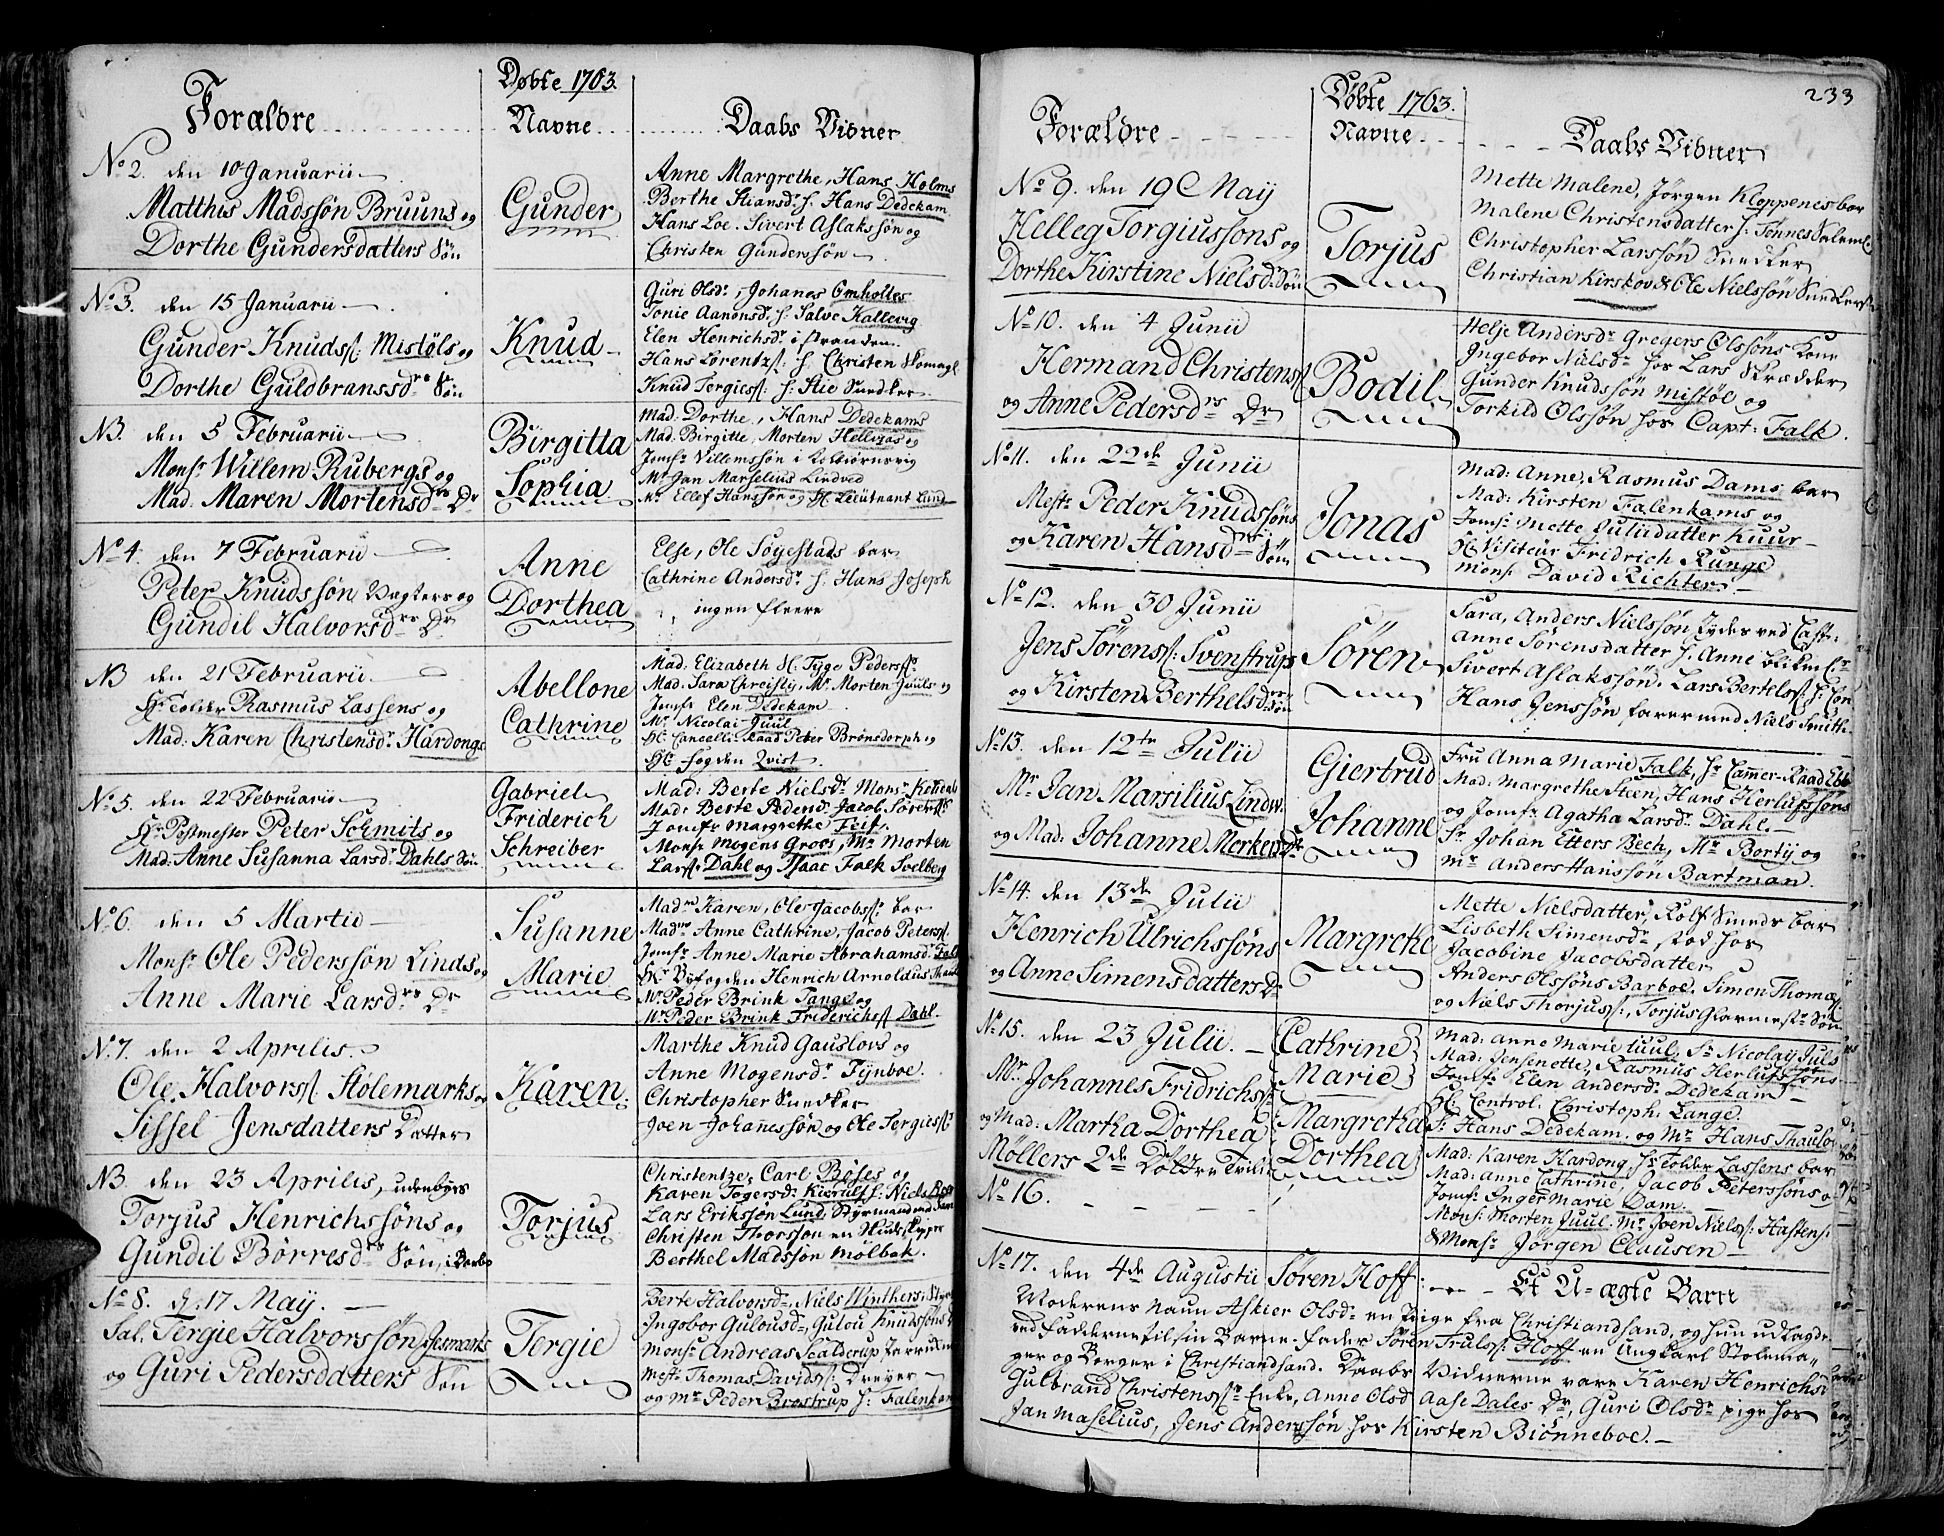 Døbte 1763.
Forældre Navne Daabs Vidner
No 2. den 10 Januarii
Matthis Madssøn Bruuns og
Dorthe Gundersdatters Søn
Gunder
Anne Margrethe, Hans Holms
Berthe Stiansdr. h: Hans Dedekam
Hans Loe. Sivert Aslakssøn og
Christen Gunderssøn
No 3. den 15 Januarii
Gunder Knuds: Mistøls og
Dorthe Guldbranssdrs Søn
Knud
Guri Olsdr, Johanes Omholtes
Tonie Aanonsdr h: Salve Kallevig
Elen Henrichsdr i stranden.
Hans Lorentz: h Christen Skomagr
Knud Tergies: h: Stie Snedker
NB. den 5 Februarii
Monsr Willem Rubergs og
Mad. Maren Mortensdrs Dr
Birgitta
Sophia
Mad: Dorthe, Hans Dedekams
Mad. Birgitte, Morten Hellezas og
Jomfr Villemssøn i
Mr Jan Marselius Lindved
Mr Ellef Hanssøn og Hr Leiutnant Lund
No 4. den 7 Februarii
Peter Knudssøn Vegters og
Gundil Halvorsdrs Dr
Anne
Dorthea
Else, Ole Søgestads bar
Cathrine Andersdr h: Hans Joseph
ingen fleere
NB den 21 Februarii
Hr Tolder Rasmus Lassens og
Mad: Karen Christensdr Hardongs
Abellone
Cathrine
Mad. Elizabeth Hr: Tyge Peders
Mad: Sara Chreisty, Mr Morten Juuls og
Jomfr Elen Dedekam
Mr Nicolai Juul
Hr Cancelli Raad Peter Brønsdorph og
Hr fogden Qvist.
No 5. den 22 Februarii
Hr Postmester Peter Schmits og
Mad: Anne Susanna Larsdr Dahls Søn
Gabriel
Friderich
Schreiber
Mad: Berte Nielsdr Monsr
Mad: Berte Pedersdr Jacob Sørens
Jomfr Margrethe Frit.
Monsr Mogens Groos, Mr Morten
Lars: Dahl og Isaac Falk Svelberg
No 6 den 5 Martii
Monsr Ole Pederssøn Linds og
Anne Marie Larsdrs Dr
Susanne
Marie
Madm Karen, Ole Jacobss: bar
Madm Anne Cathrine, Jacob Peters:
Jomfr Anne Marie Abrahamsdr Falk
Hr Byfogden Henrich Arnoldus Thaulo
Mr Peder Brink Tange og
Mr Peder Brink Friderichs Dahl.
No 7. den 2 Aprilis.
Ole. Halvors: Stølemarks og
Sissel Jensdatters Datter
Karen
Marthe Knud Gauslovs og
Anne Mogensdr Fynboe.
Christopher Snedker
Joen Johanessøn og Ole Tergies:
NB den 23 Aprilis, udenbyes
Torjus Henrichssøns og
Gundil Børresdrs Søn, i Barbo
Torjus
Christentze, Carl Bøses og
Karen Togersdr Kierulf h: Niels
Lars Erikssøn Lund, Styrmand
Christen Thorsson en Hundskipper
Berthel Madssøn Mølbak.
No 8. d. 17 May.
Sal. Tergie Halvorssøn
og Guri Pedersdatters Søn
Tergie
Berte Halvorsdr, Niels Winthers:
Ingebor Gulousdr, Gulou Knudssøns
Monsr Andreas Scalderup,
Mestr Thomas Davids: Dreyer
og Mr Peder Brostrup h: Falenkam
233
Døbte 1763.
Forældre Navne Daabs Vidner
No 9. den 19 May
Helleg Torgiussøns og
Dorthe Kirstine Nielsdr Søn
Torjus
Mette Malene, Jørgen Kloppenes bar
Malene Christensdatter h: Tønnes
Christopher Larssøn Snedker
Christian Kirskov & Ole Nielssøn Snedker
No 10. den 4 Junii
Hermand Christens
og Anne Pedersdrs Dr
Bodil
Helje Andersdr Gregers Olssøns Kone
Ingebor Nielsdr hos Lars Skrædder
Gunder Knudssøn Mistøl og
Torkild Olssøn hos Capt: Falk.
No 11. den 22de Junii
Mestr Peder Knudssøns
og Karen Hansdrs Søn
Jonas
Mad: Anne, Rasmus Dams bar
Mad: Kirsten Falenkams og
Jomfr Mette Juliidatter Kuur
Hr Visiteur Fridrich Runge
Mons: David Richter.
No 12. den 30 Junii
Jens Sørens: Svenstrups
og Kirsten Berthelsdrs Søn
Søren
Sara, Anders Nielssøn Jydes ved
Anne Sørensdatter h: Anne
Sivert Aslakssøn. Lars Bertels: h:
Hans Jenssøn, farer med Niels Smith
No 13. den 12te Julii
Mr Jan Marsilius Lindw.
og Mad: Johanne Merkersdr
Giertrud
Johanne
Fru Anna Marie Falk, Hr Cammer-Raad Ebb
Mad: Margrethe Steen, Hans Herlufssøns
og Jomfr Agatha Larsdr Dahl.
Sr Johan Etters Bech, Mr Borty og
Mr Anders Hanssøn Bartman.
No 14. den 13de Julii
Henrich Ulrichssøns
og Anne Simensdatters Dr
Margrethe
Mette Nielsdatter, Rolf Smeds bar
Lisbeth Simensdr stod hos
Jacobine Jacobsdatter
Anders Olssøns Barboe. Simen Thomæ
og Niels Thorjus:, Torjus Glarmestr Søn
No 15. den 23 Julii.
Mr Johannes Fridrichs:
og Mad: Martha Dorthea
Møllers 2de Døttre Tvilin
No 16.
Cathrine
Marie
Margretha
Dorthea
Mad: Anne Marie Juul, Sr Nicolay Juls
Mad: Jensenette, Rasmus Herlufssøns
Jomfr Elen Andersdr Dedekam
Hr: Control. Christoph: Lange
Sr Hans Dedekam. og Mr Hans Thaulo
Mad: Karen Hardong, Hr Tolder Lassens bar
Mad: Anne Cathrine, Jacob Peterssøns og
Jomfr Inger Marie Dam.
Mons: Morten Juul. Mr Joen Niels: Hastens:
& Monsr Jørgen Clausen
No 17. den 4de Augustii Søren Hoff: Et U-ægte Barn
Moderens Naun Askier Olsdr en Pige fra Christiandsand, og hun udlagde
ved Faddernetil sin Barne-fader Søren Truls: Hoff en Ungkarl Stolema-
ger og Borger i Christiandsand. Daabs Vidnerne vare Karen Henrichsdr
Gulbrand Christens: Enke, Anne Olsd Aase Dales Dr, Guri Olsdr pige hos
Jan Maselius, Jens Anderssøn hos Kirsten Biønneboe.